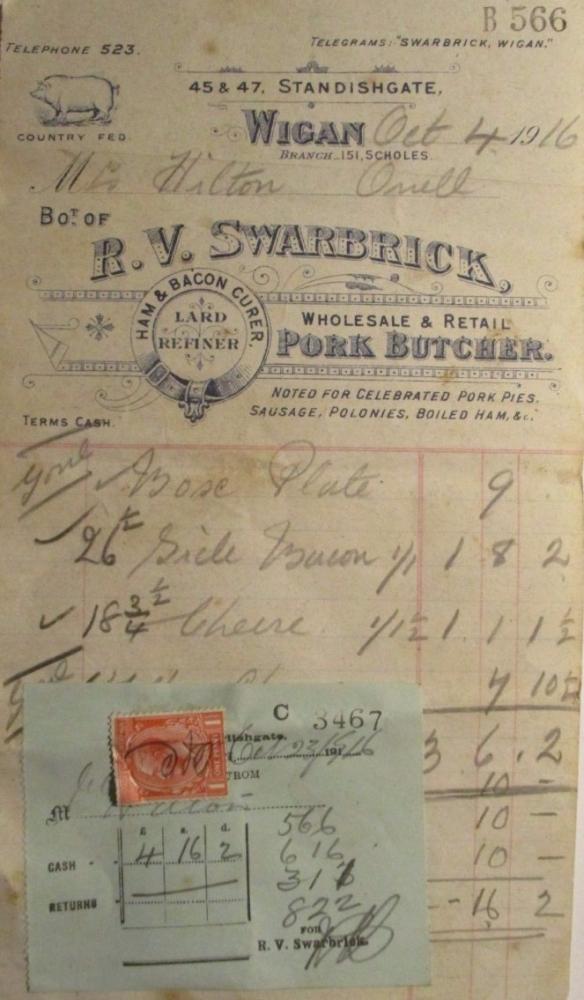 B 566
TELEPHONE 523.
TELEGRAMS: "SWARBRICK, WIGAN."
45 & 47, STANDISHGATE,
COUNTRY FED.
WIGAN Oct 4 1916
BRANCH 151, SCHOLES.
Mrs Hilton Orrell
BOT. OF
R. V. SWARBRICK,
HAM & BACON CURER.
LARD
REFINER
WHOLESALE & RETAIL
PORK BUTCHER.
NOTED FOR CELEBRATED PORK PIES,
SAUSAGE, POLONIES, BOILED HAM, &c.
TERMS CASH.
Plate 9
26 1/2 Side Bacon 1/1 1 8 2
18 3/4 Cheese 1/1 1/2 1 1 1 1/2
7 10 1/2
3 6 . 2
10 -
10 -
10 -
- 16 2
C 3467
dishgate,
Oct 23 1916
FROM
M Hilton
£ s. d.
CASH - 4 16 2
RETURNS
566
616
822
FOR
R. V. Swarbrick.